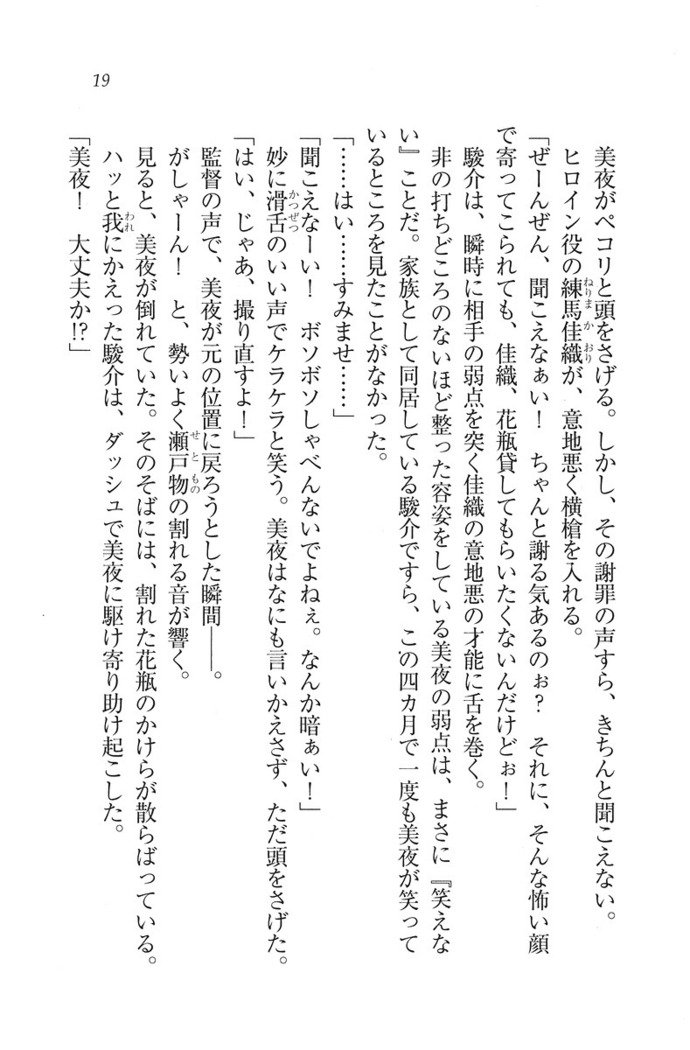 19
美夜がペコリと頭をさげる。しかし、その謝罪の声すら、きちんと聞こえない。
ヒロイン役の練馬佳織が、意地悪く横槍を入れる。
「ぜーんぜん、聞こえなぁい！　ちゃんと謝る気あるのぉ？　それに、そんな怖い顔
で寄ってこられても、佳織、花瓶貸してもらいたくないんだけどぉ！」
駿介は、瞬時に相手の弱点を突く佳織の意地悪の才能に舌を巻く。
非の打ちどころのないほど整った容姿をしている美夜の弱点は、まさに『笑えな
い』ことだ。家族として同居している駿介ですら、この四カ月で一度も美夜が笑って
いるところを見たことがなかった。
「……はい……すみませ……」
「聞こえなーい！　ボソボソしゃべんないでよねぇ。なんか暗ぁい！」
妙に滑舌のいい声でケラケラと笑う。美夜はなにも言いかえさず、ただ頭をさげた。
「はい、じゃあ、撮り直すよ！」
監督の声で、美夜が元の位置に戻ろうとした瞬間――。
がしゃーん！　と、勢いよく瀬戸物の割れる音が響く。
見ると、美夜が倒れていた。そのそばには、割れた花瓶のかけらが散らばっている。
ハッと我にかえった駿介は、ダッシュで美夜に駆け寄り助け起こした。
「美夜！　大丈夫か!?」